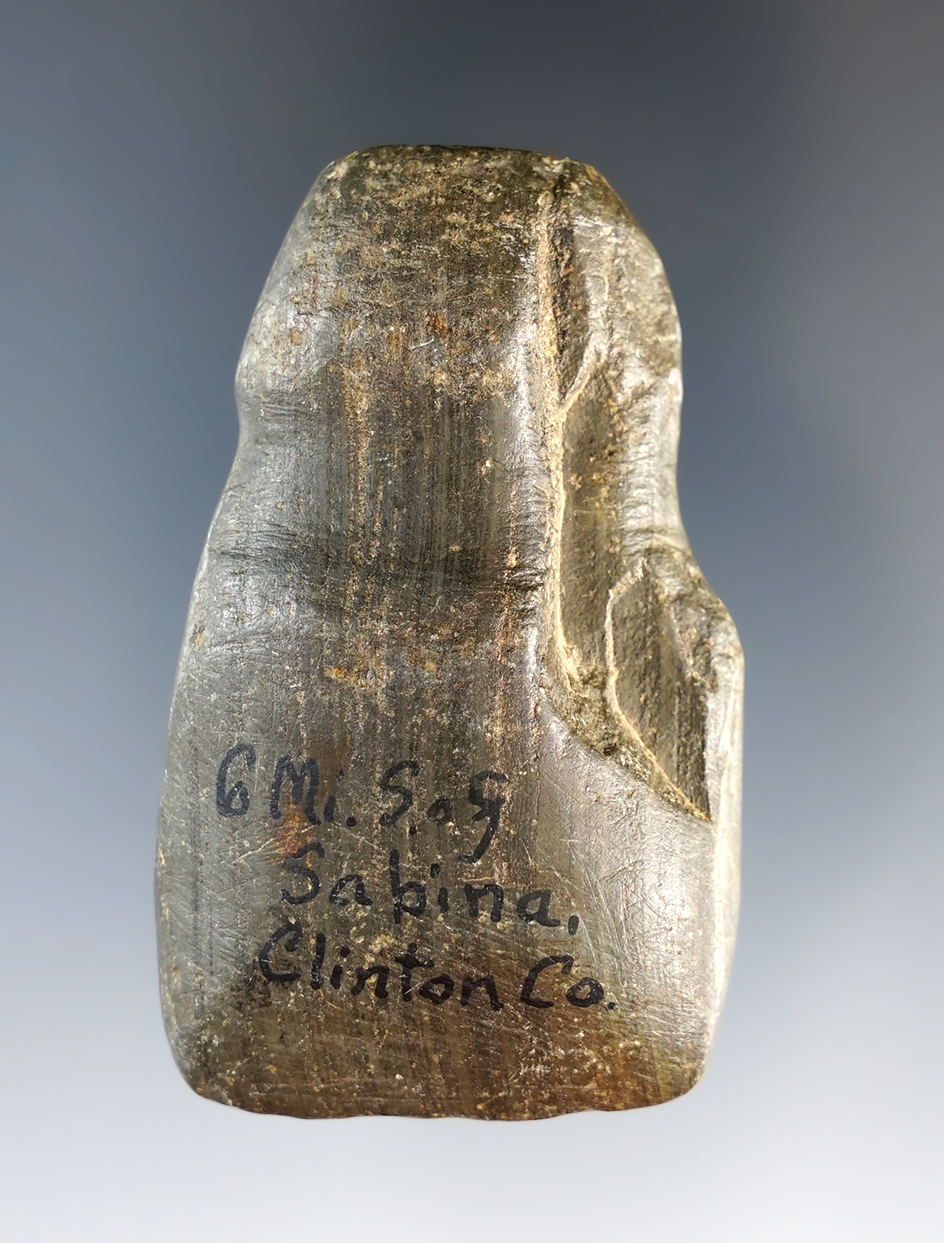 6 Mi. S. of
Sabina,
Clinton Co.